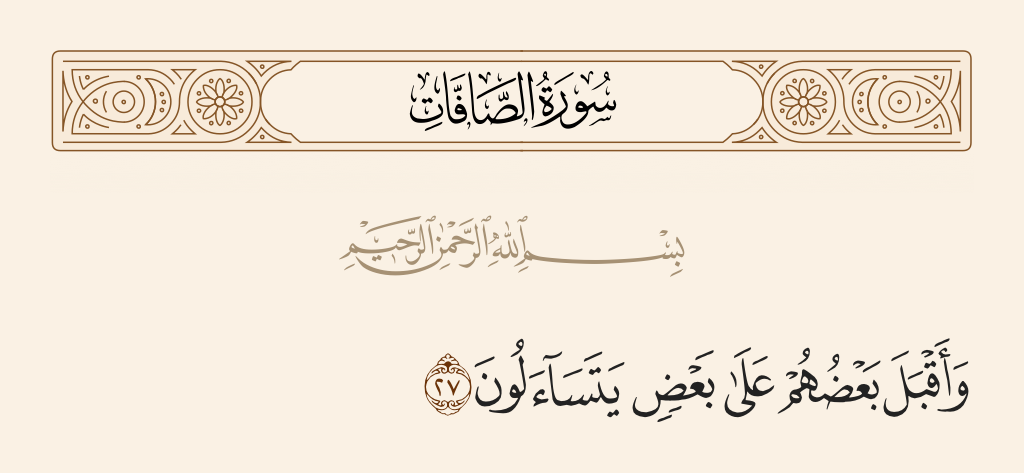 سُورَةُ الصَّافَّاتِ
بِسْمِ ٱللَّهِ ٱلرَّحْمَٰنِ ٱلرَّحِيمِ
وَأَقْبَلَ بَعْضُهُمْ عَلَىٰ بَعْضٍ يَتَسَآءَلُونَ ٢٧